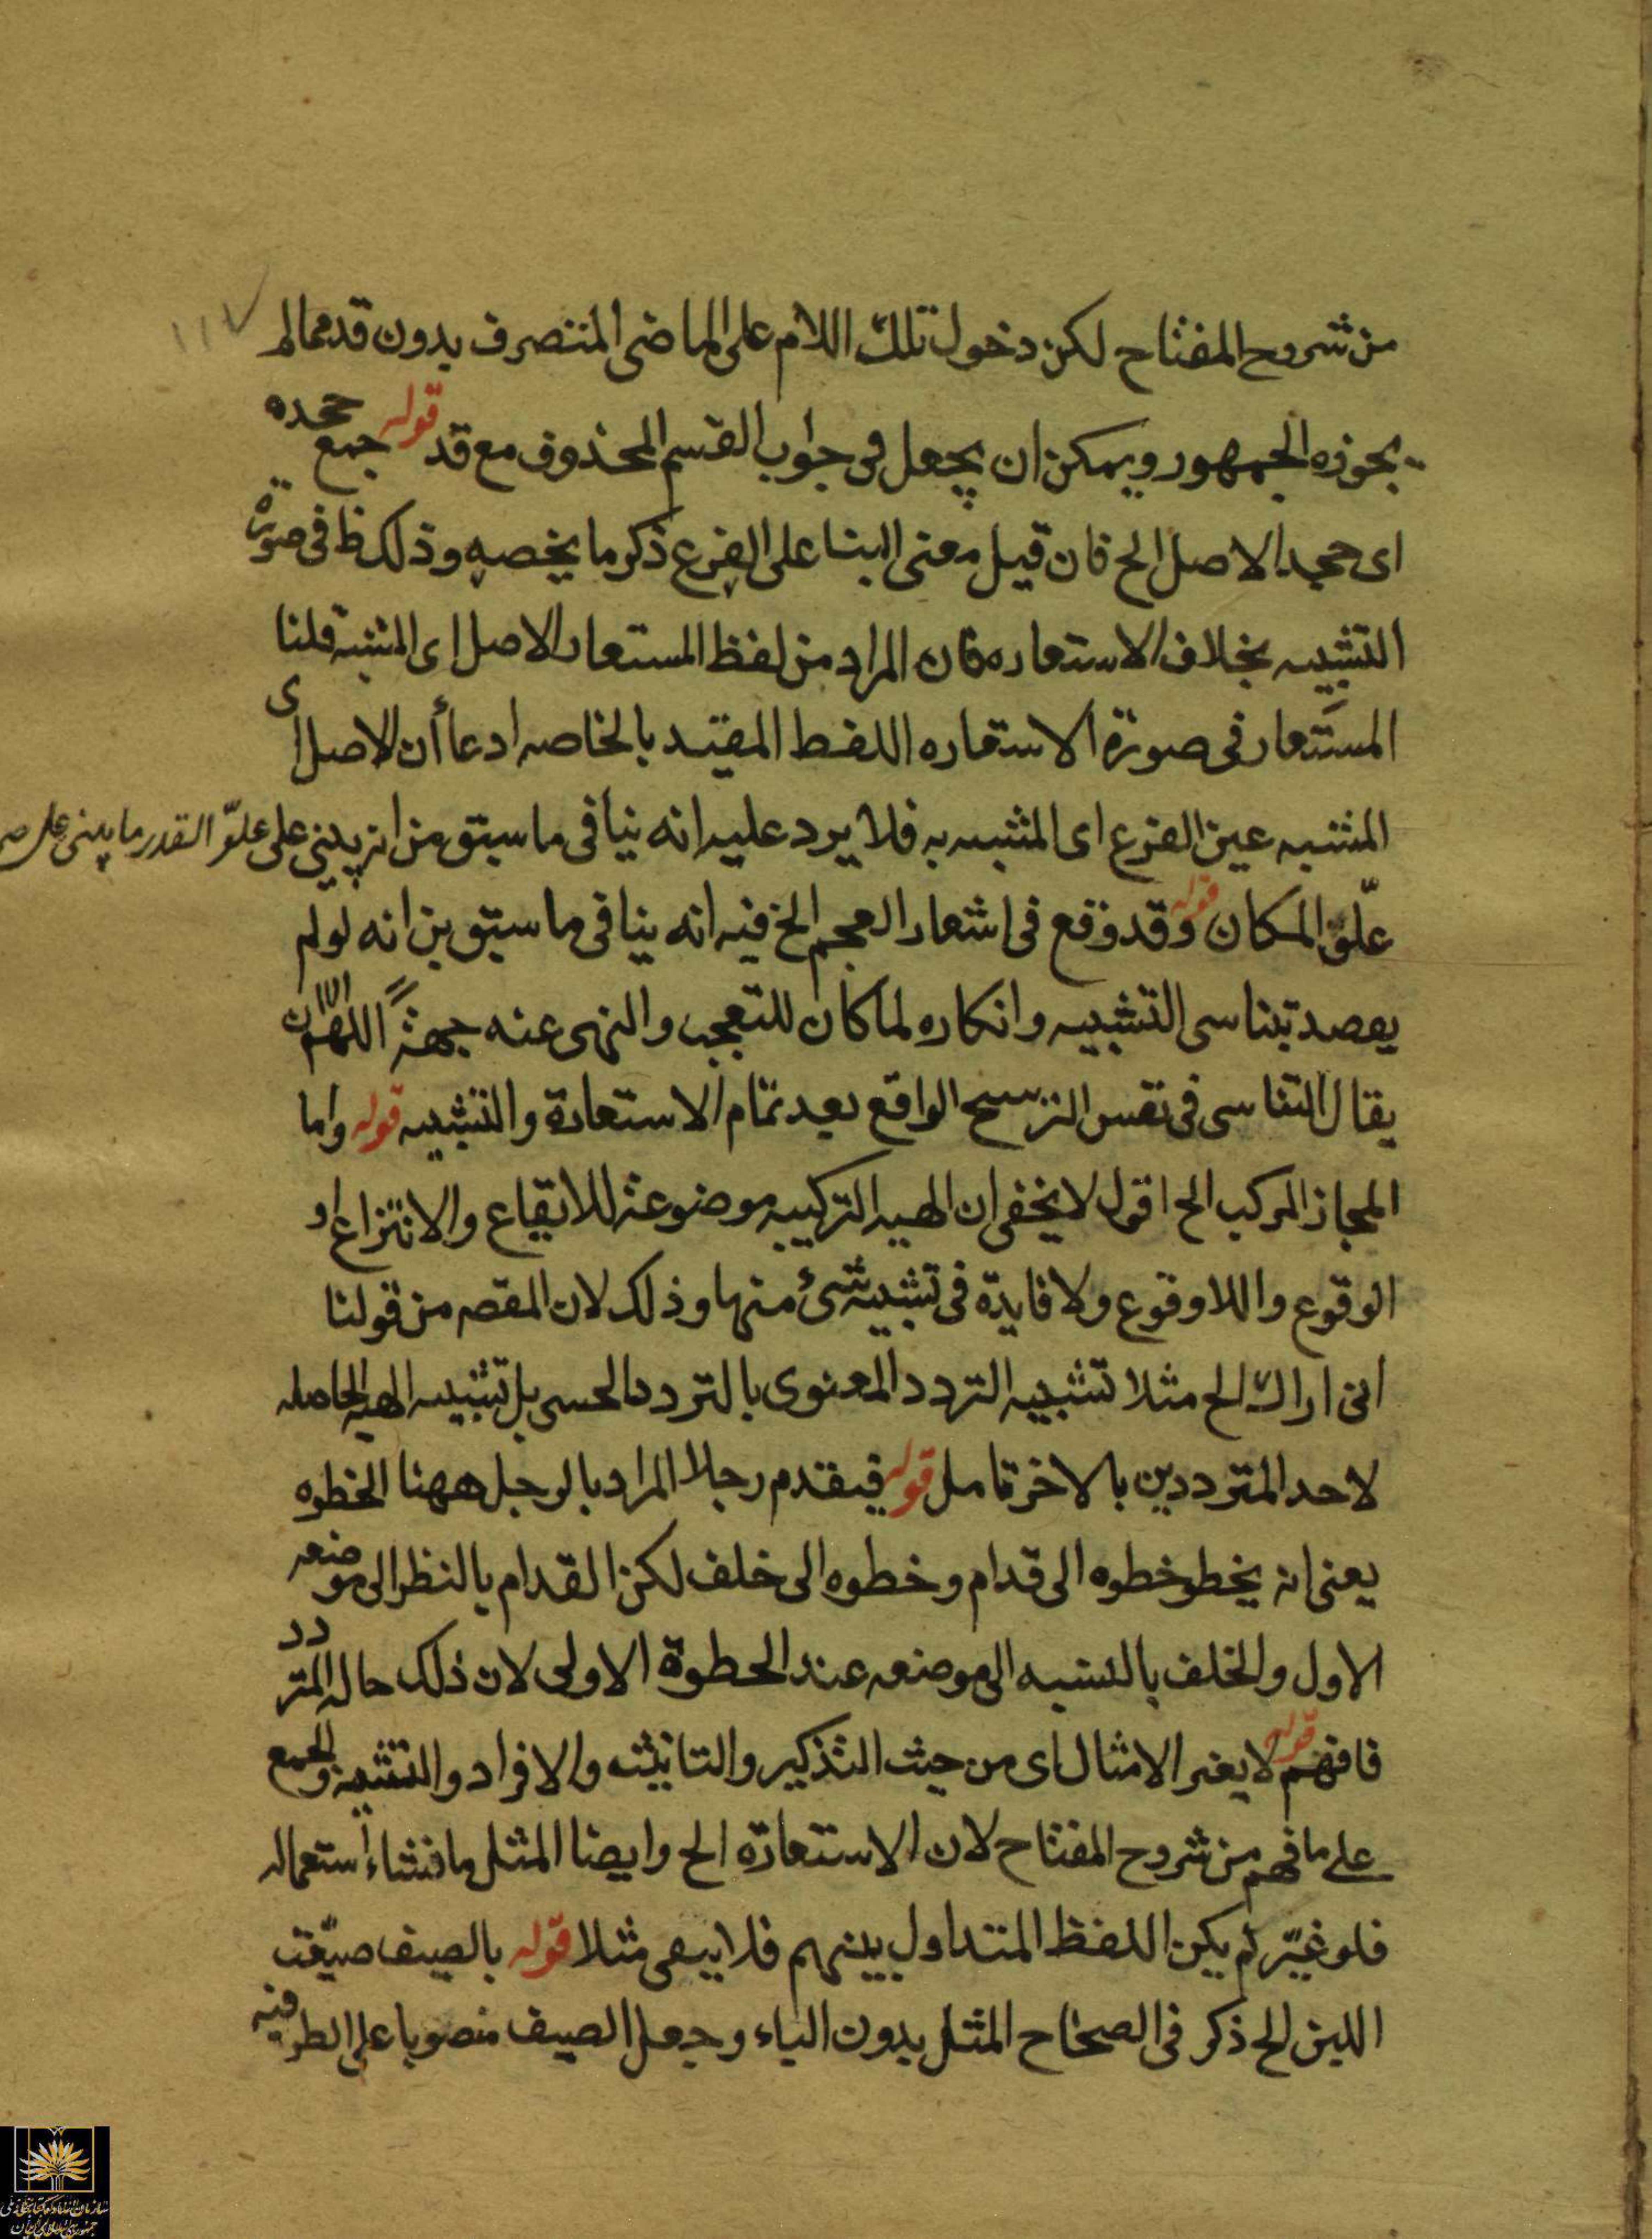 ١١٧
من شروح المفتاح لكن دخول تلك اللام على الماضى المتصرف بدون قد مما لم
يجوزه الجمهور ويمكن ان يجعل فى جواب القسم المحذوف مع قد قوله جمع جحده
اى جحد الاصل الخ فان قيل معنى البنا على الفرع ذكر ما يخصه وذلك ظ فى صورة
التشبيه بخلاف الاستعاره فان المراد من لفظ المستعار الاصل اى المشبه قلنا
المستعار فى صورة الاستعاره اللفظ المقيد بالخاصه ادعا أن الاصل اى
المشبه عين الفرع اى المشبه به فلا يرد عليه انه ينافى ما سبق من انه يبنى على علوّ القدر ما يبنى على
علّو المكان قوله وقد وقع فى اشعار العجم الخ فيه انه ينافى ما سبق من انه لو لم
يقصد تناسى التشبيه وانكاره لما كان للتعجب والنهى عنه جهة اللهم الا ان
يقال التناسى فى نفس الترشيح الواقع بعد تمام الاستعارة والتشبيه قوله واما
المجاز المركب الخ اقول لا يخفى ان الهيه التركيبيه موضوعة للايقاع والانتزاع او
الوقوع واللاوقوع ولا فايدة فى تشبيه شئ منها وذلك لان المقصه من قولنا
انى اراك الخ مثلا تشبيه التردد المعنوى بالتردد الحسى بل تشبيه الهيه الحاصله
لاحد المترددين بالاخر تامل قوله فيقدم رجلا المراد بالرجل ههنا الخطوه
يعنى انه يخطو خطوه الى قدام وخطوه الى خلف لكن القدام بالنظر الى موضعه
الاول والخلف بالنسبه الى موضعه عند الخطوة الاولى لان ذلك حاله المتردد
فافهم قوله لا يغير الامثال اى من حيث التذكير والتانيث والافراد والتثنيه والجمع
على ما فهم من شروح المفتاح لان الاستعارة الخ وايضا المثل ما فشاء استعماله
فلو غيّر لم يكن اللفظ المتداول بينهم فلا يبقى مثلا قوله بالصيف ضيّعت
اللبن الخ ذكر فى الصحاح المثل بدون الباء وجعل الصيف منصوبا على الظرفيه